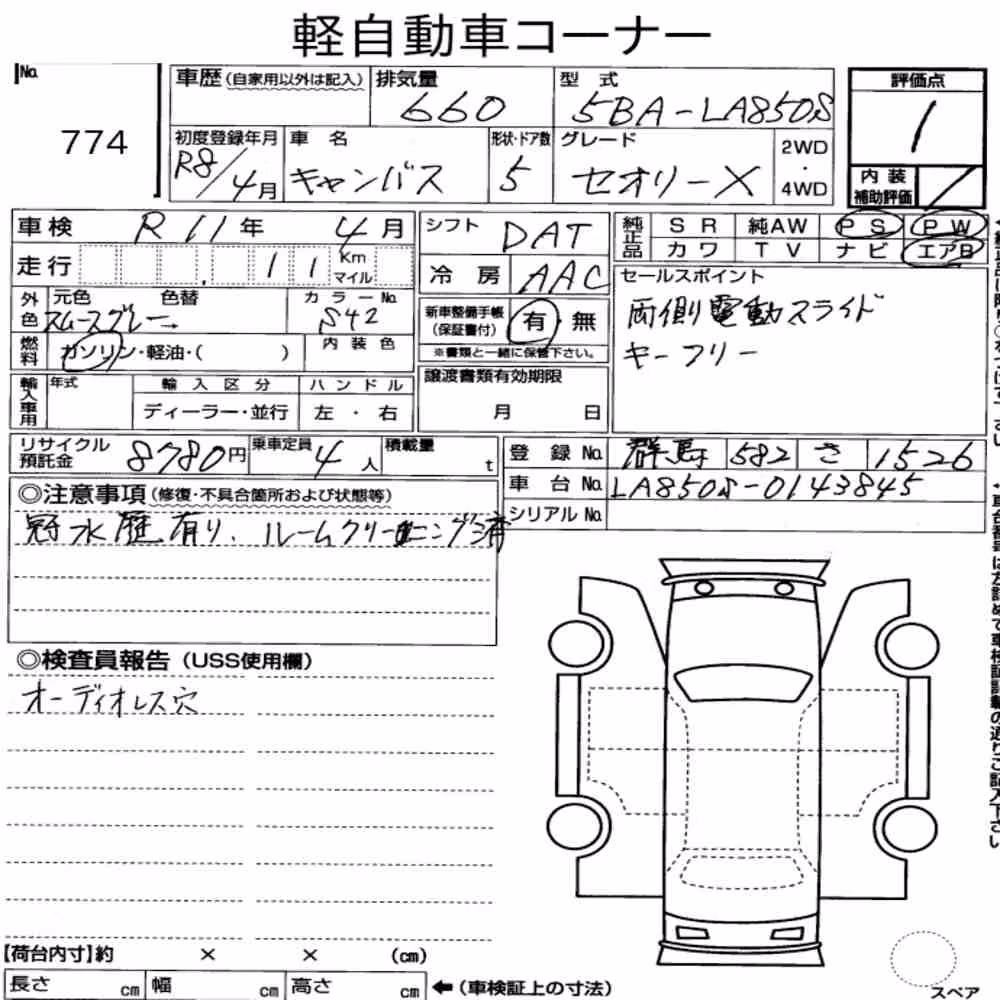 軽自動車コーナー
No.
774
車歴(自家用以外は記入) 排気量 型式
660 5BA-LA850S
評価点
1
初度登録年月 車名 形状・ドア数 グレード 2WD・4WD
R8/4月 キャンバス 5 セオリーX
内装補助評価
車検 R11年 4月
シフト DAT
純正品 SR 純AW PS PW
カワ TV ナビ エアB
走行 11 Km マイル
冷房 AAC
セールスポイント
両側電動スライド
キーフリー
外色 元色 色替 カラーNo.
スムースグレー→ S42
新車整備手帳(保証書付) 有・無
※書類と一緒に保管下さい。
燃料 ガソリン・軽油・( ) 内装色
輸入車用 年式 輸入区分 ハンドル
ディーラー・並行 左・右
譲渡書類有効期限
月 日
リサイクル預託金 8780円 乗車定員 4人 積載量 t
登録No. 群馬 582 さ 1526
車台No. LA850S-0143845
シリアルNo.
◎注意事項(修復・不具合箇所および状態等)
冠水歴有り、ルームクリーニング済
◎検査員報告(USS使用欄)
オーディオレス穴
【荷台内寸】約 × × (cm)
長さ cm 幅 cm 高さ cm ←(車検証上の寸法)
スペア